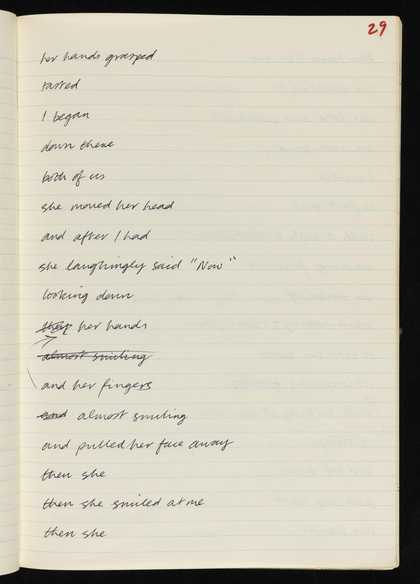 29
her hands grasped
tasted
I began
down there
both of us
she moved her head
and after I had
she laughingly said "Now"
looking down
her hands
almost smiling
and her fingers
and almost smiling
and pulled her face away
then she
then she smiled at me
then she